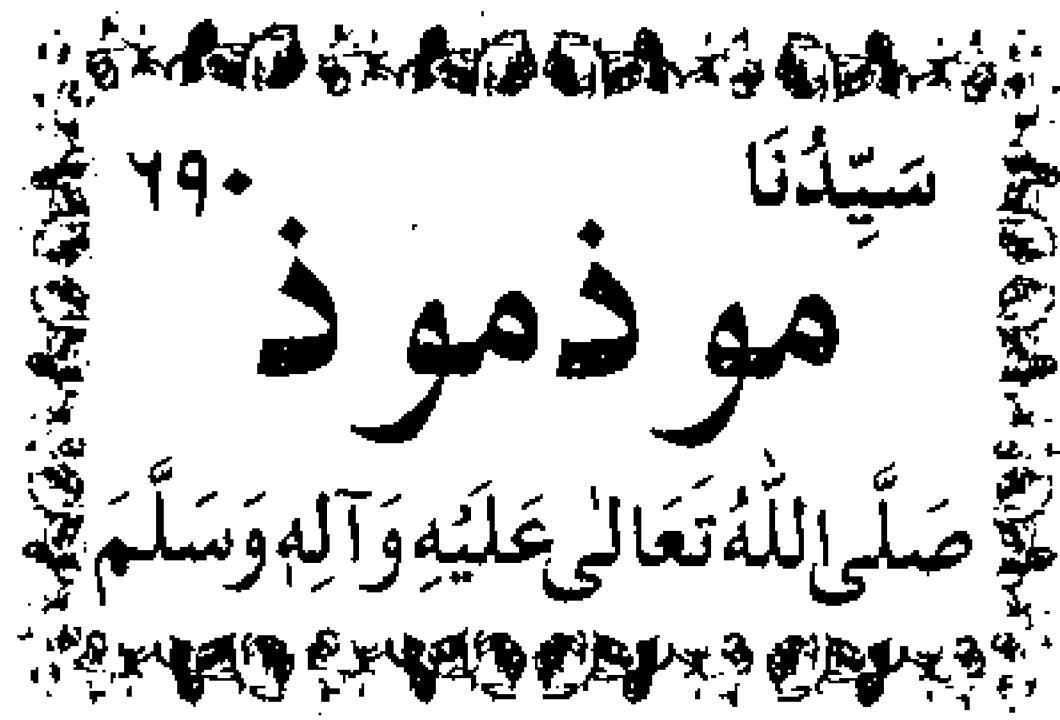 سَيِّدُنَا ٦٩٠
موذموذ
صَلَّى اللّٰهُ تَعَالٰى عَلَيْهِ وَآلِهٖ وَسَلَّمَ